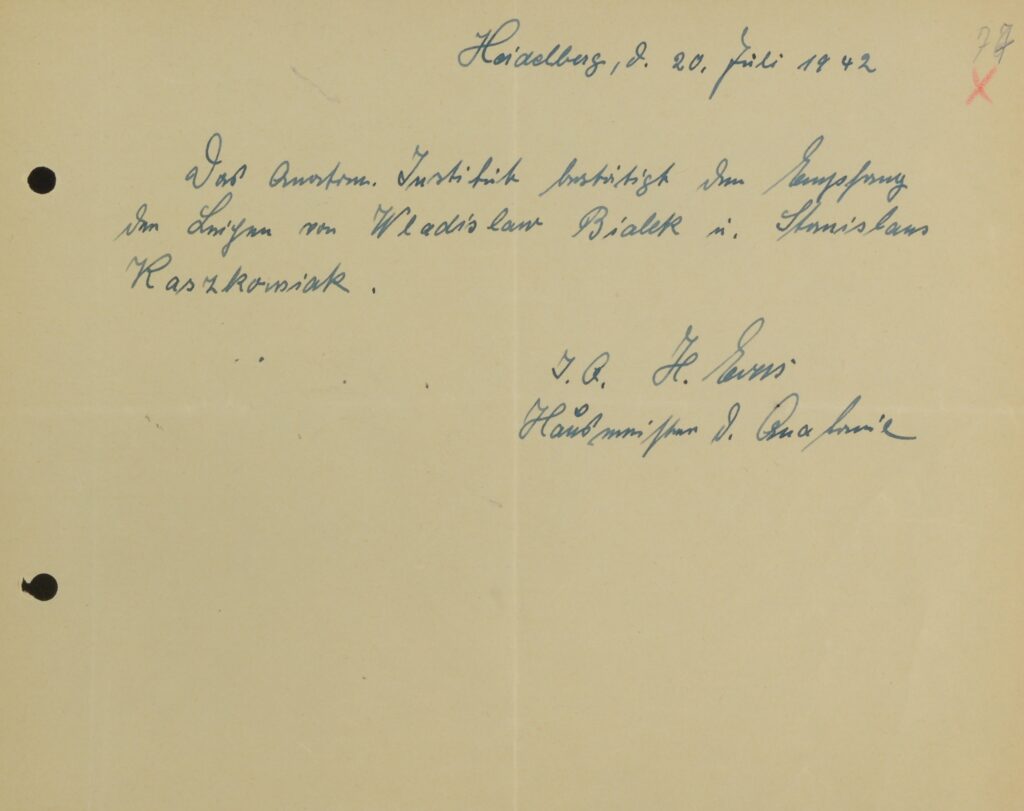 Heidelberg, d. 20. Juli 1942
Das Anatom. Institut bestätigt den Empfang
der Leichen von Wladislaw Bialek u. Stanislaus
Kaszkowiak.
I. A. H. Evers
Hausmeister d. Anatomie